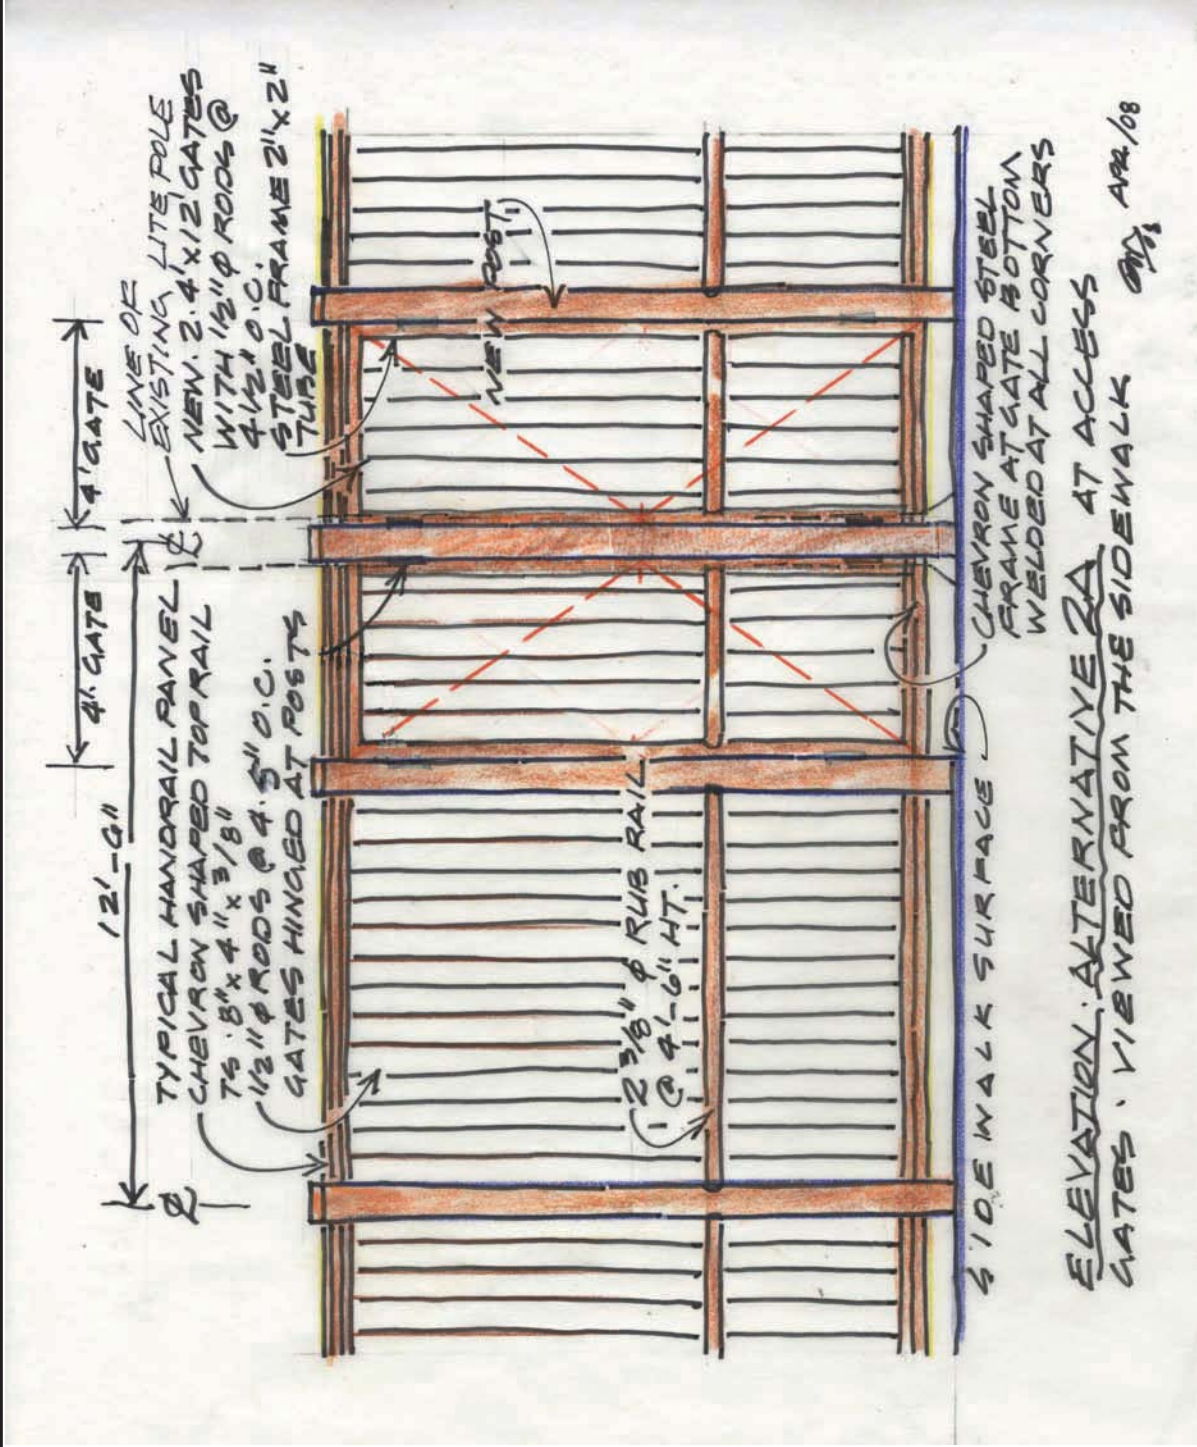 12'-6"
4' GATE
4' GATE
LINE OF
EXISTING LITE POLE
NEW · 2 · 4' x 12' GATES
WITH 1/2" Ø RODS @
4 1/2" O.C.
STEEL FRAME 2" x 2"
TUBE
TYPICAL HANDRAIL PANEL
CHEVRON SHAPED TOP RAIL
TS · 8" x 4" x 3/8"
1/2" Ø RODS @ 4.5" O.C.
GATES HINGED AT POSTS
NEW POST
2 3/8" Ø RUB RAIL
@ 4'-6" HT.
SIDEWALK SURFACE
CHEVRON SHAPED STEEL
FRAME AT GATE BOTTOM
WELDED AT ALL CORNERS
ELEVATION: ALTERNATIVE 2A AT ACCESS
GATES · VIEWED FROM THE SIDEWALK
APR/08